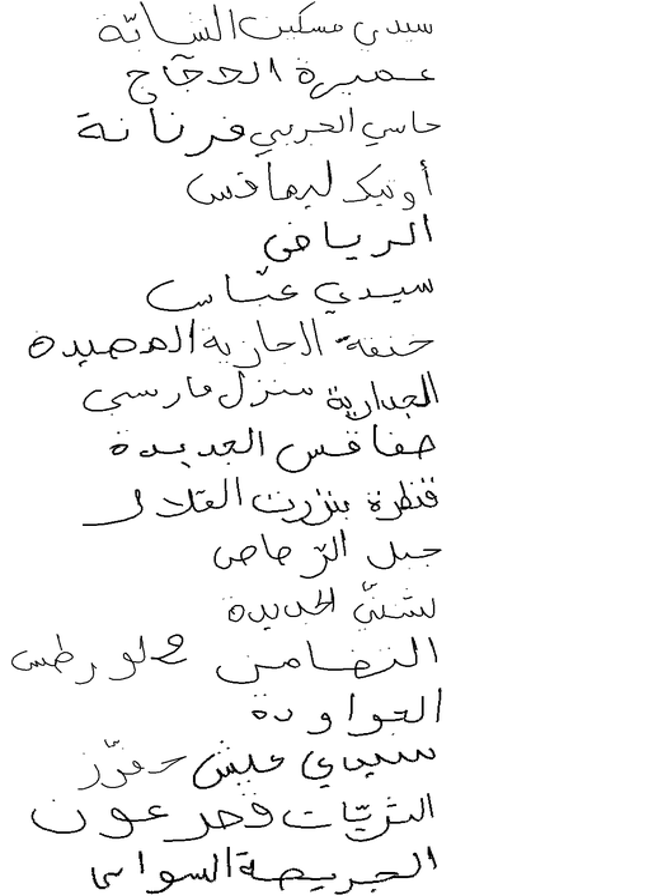 سيدي مسكين الشابّة
عميرة الحجّاج
حاسي الجربي فرنانة
أوتيك ليماقس
الرياض
سيدي عبّاس
خنقة الجازية المصيدة
الجدارية منزل فارسي
صفاقس الجديدة
قنطرة بنزرت القلال
جبل الرّصاص
بشنّي الجديدة
التضامن 2
العواودة
سيدي عيش حفّوز
الثريّات قصر عون
الجريصة السواسي